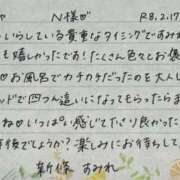 N様♡ R8.2.17
いらしている貴重なタイミングですみれ
も嬉しかったです!たくさん色々とお優
♡お風呂でカチカチだったのを大し
ッドで四つん這いになってもらったらま
ね♡いっぱい感じて下さり良かった
後でしょうか?楽しみにお待ちして
新條 すみれ